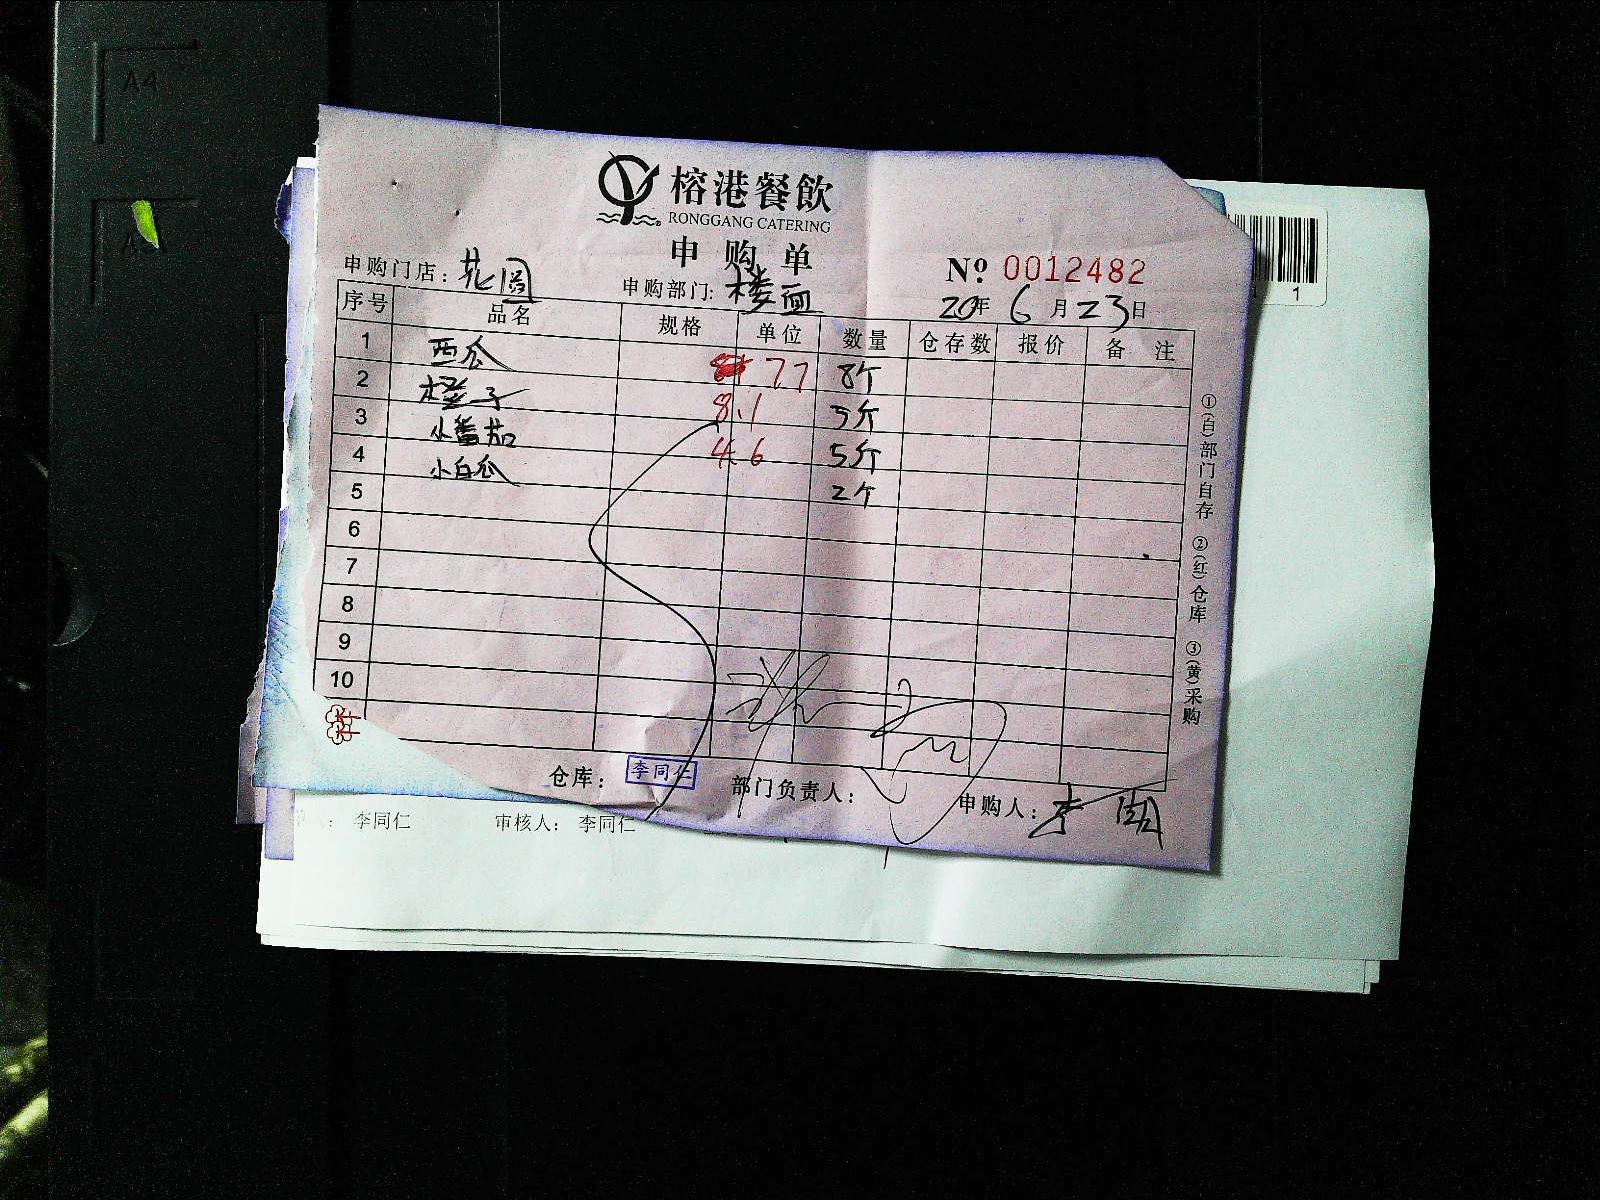 A4
榕港餐飲
RONGGANG CATERING
申购单
申购门店: 花园
申购部门: 楼面
№ 0012482
20年 6月 23日
序号 品名 规格 单位 数量 仓存数 报价 备注
1 西瓜 77 8个
2 橙子 8.1 5斤
3 小番茄 4.6 5斤
4 小白瓜 2个
5
6
7
8
9
10
①(白)部门自存 ②(红)仓库 ③(黄)采购
仓库: 李同仁 部门负责人: 申购人: 李
李同仁 审核人: 李同仁
1